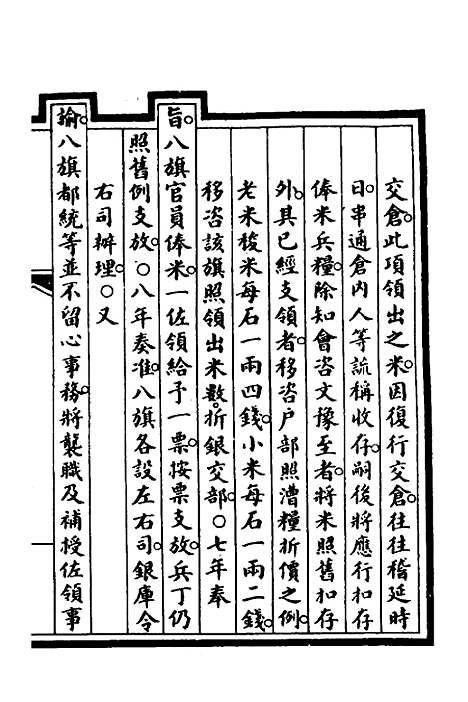 交倉。此項領出之米。因復行交倉。往往稽延時
日。串通倉內人等謊稱收存。嗣後將應行扣存
俸米兵糧。除知會咨文豫至者。將米照舊扣存
外。其已經支領者。移咨戶部照漕糧折價之例。
老米梭米每石一兩四錢。小米每石一兩二錢。
移咨該旗照領出米數。折銀交部。○七年奉
旨。八旗官員俸米。一佐領給予一票。按票支放。兵丁仍
照舊例支放。○八年奏准。八旗各設左右司。銀庫令
右司辦理。○又
諭。八旗都統等並不留心事務。將襲職及補授佐領事